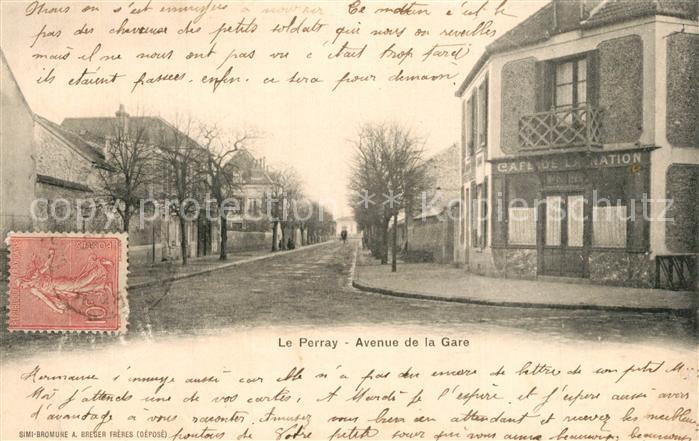 Nous on s'est ennuyées à mourir Ce matin c'était le
pas des chevaux des petits soldats qui nous on reveillés
mais il ne nous ont pas vu c'était trop tard
ils étaient passées. enfin, ce sera pour demain.
CAFÉ DE LA NATION
copyright protection Kopierschutz
Le Perray - Avenue de la Gare
Hermanie s'ennuye aussi car elle n'a pas eu encore de lettre de son petit M..
Moi j'attends une de vos cartes, A Mardi je l'espère et j'espère aussi avoir
d'avantage à vous raconter. Amusez vous bien en attendant et recevez les meilleurs
SIMI-BROMURE A. BREGER FRÈRES (DÉPOSÉ)
de Votre petite sœur qui vous aime beaucoup beaucoup